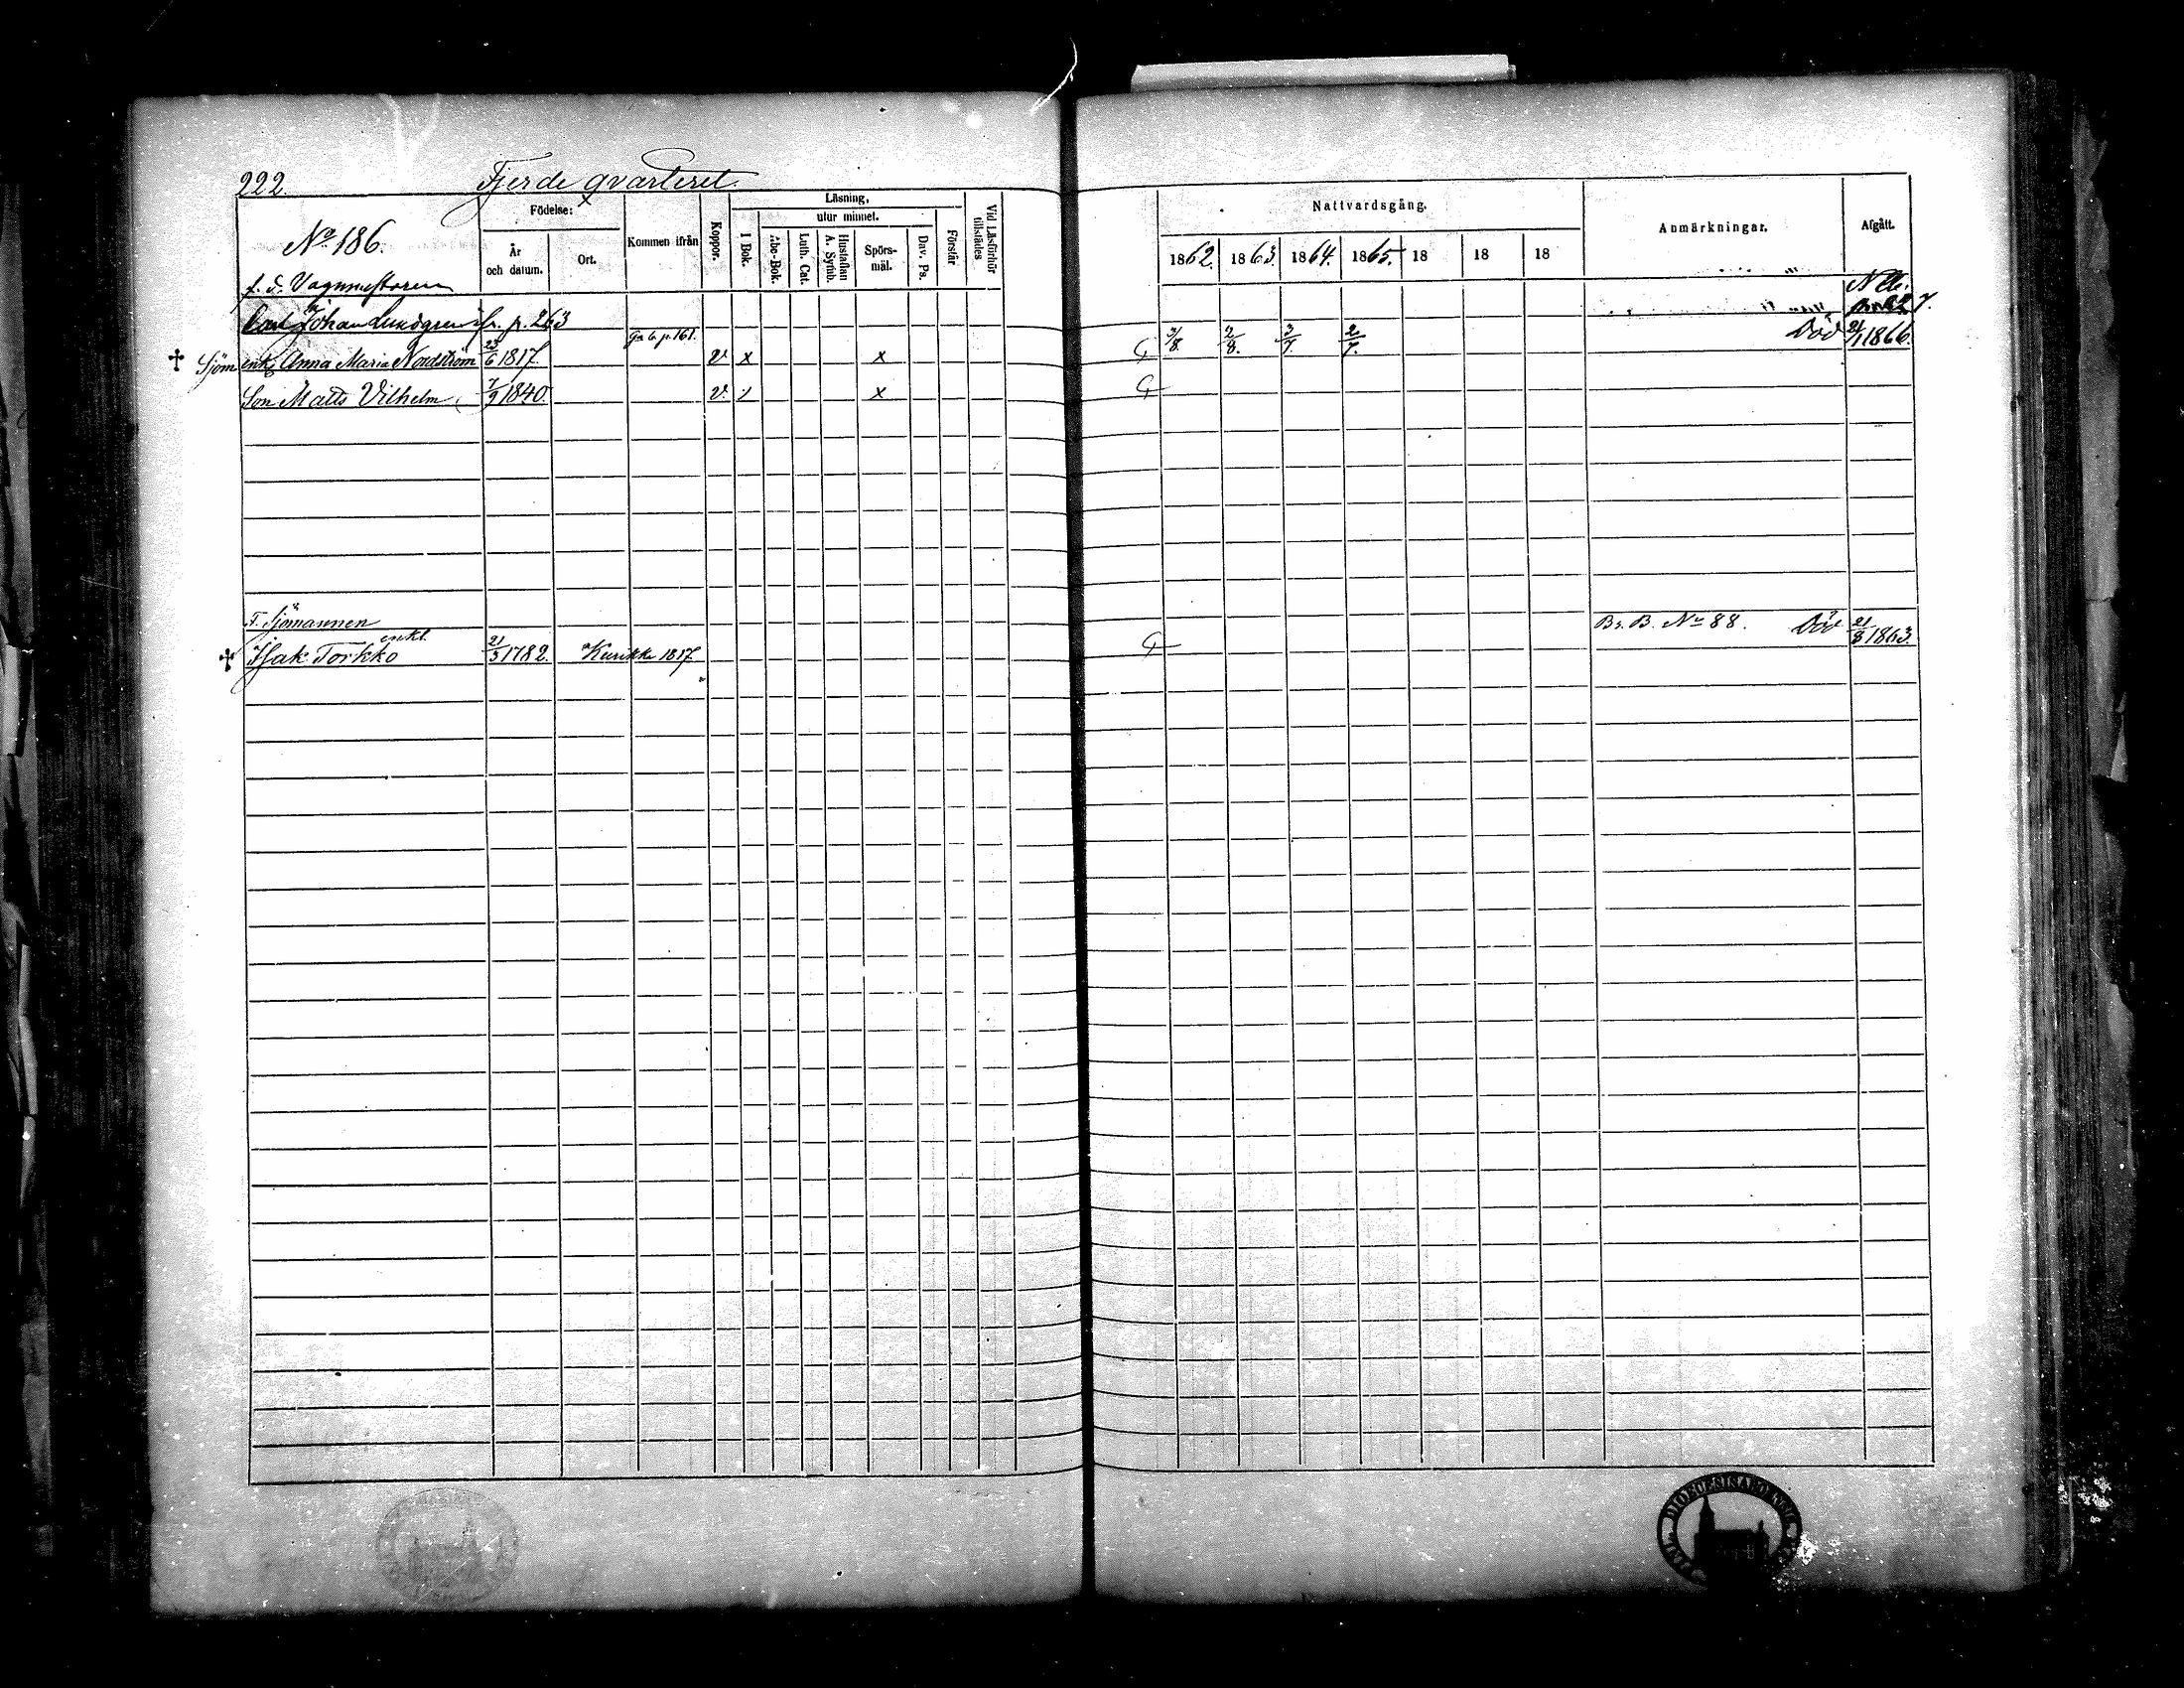 222. Fjerde qvarteret.
No 186.
Födelse:
År och datum.
Ort.
Kommen ifrån
Koppor.
Läsning,
I Bok.
utur minnet.
Abc-Bok.
Luth. Cat.
Hustaflan A. Symb.
Spörs-mål.
Dav. Ps.
Förstår
Vid Läsförhör tillstädes
Nattvardsgång.
1862. 1863. 1864. 1865. 18 18 18
Anmärkningar.
Afgått.
f. d. Vagnmestaren
Carl Johan Lundgren fr. p. 263
Sjöm enk. Anna Maria Nordström 23/6 1817. Ga b. p. 161. v x x 3/8. 2/8. 3/7. 2/7. Död 21/1 1866.
Son Matts Vilhelm 7/9 1840. v. x
F. Sjömannen Br. B. No 88. Död 21/8 1863.
Isak Torkko enkl. 21/3 1782. Kurikka 1817